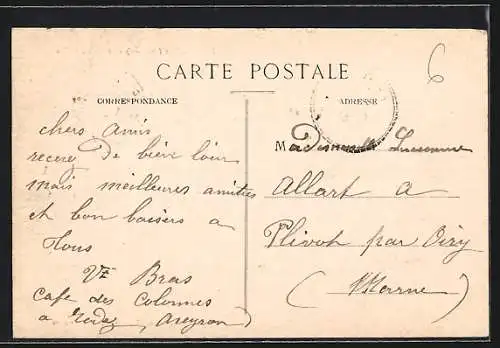 6
CARTE POSTALE
CORRESPONDANCE
ADRESSE
chers amis
recevez de bien loin
mais meilleures amities
et bon baisers a
Tous
Vve Bras
Cafe des Colonnes
a rodez Aveyron
Mademoiselle Lucienne
Allart a
Plivot par Oiry
(Marne)